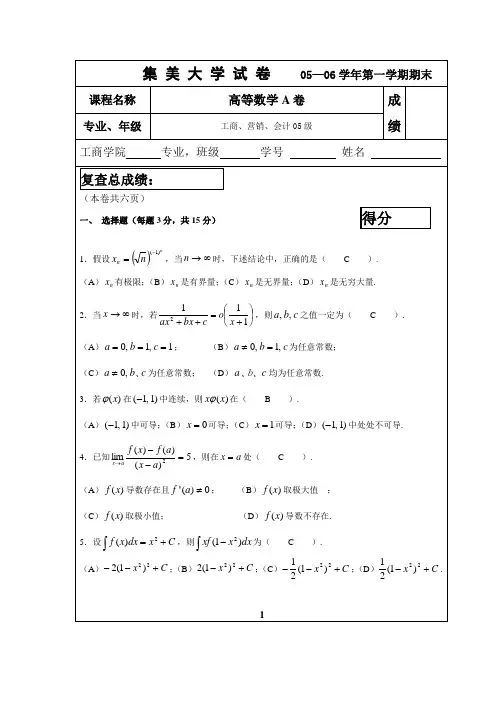 集 美 大 学 试 卷 05—06 学年第一学期期末
课程名称 高等数学 A 卷 成
专业、年级 工商、营销、会计 05 级 绩
工商学院 专业，班级 学号 姓名
复查总成绩：
（本卷共六页）
一、 选择题（每题 3 分，共 15 分） 得分
1．假设 $x_n=\left(\sqrt{n}\right)^{(-1)^n}$，当 $n\to\infty$ 时，下述结论中，正确的是（ C ）.
（A）$x_n$ 有极限；（B）$x_n$ 是有界量；（C）$x_n$ 是无界量；（D）$x_n$ 是无穷大量.
2．当 $x\to\infty$ 时，若 $\frac{1}{ax^2+bx+c}=o\left(\frac{1}{x+1}\right)$，则 $a,b,c$ 之值一定为（ C ）.
（A）$a=0,b=1,c=1$； （B）$a\neq 0,b=1,c$ 为任意常数；
（C）$a\neq 0,b、c$ 为任意常数； （D）$a、b、c$ 均为任意常数.
3．若 $\varphi(x)$ 在 $(-1,1)$ 中连续，则 $x\varphi(x)$ 在（ B ）.
（A）$(-1,1)$ 中可导；（B）$x=0$ 可导；（C）$x=1$ 可导；（D）$(-1,1)$ 中处处不可导.
4．已知 $\lim_{x\to a}\frac{f(x)-f(a)}{(x-a)^2}=5$，则在 $x=a$ 处（ C ）.
（A）$f(x)$ 导数存在且 $f'(a)\neq 0$； （B）$f(x)$ 取极大值 ；
（C）$f(x)$ 取极小值； （D）$f(x)$ 导数不存在.
5．设 $\int f(x)dx=x^2+C$，则 $\int xf(1-x^2)dx$ 为（ C ）.
（A）$-2(1-x^2)^2+C$；（B）$2(1-x^2)^2+C$；（C）$-\frac{1}{2}(1-x^2)^2+C$；（D）$\frac{1}{2}(1-x^2)^2+C$.
1